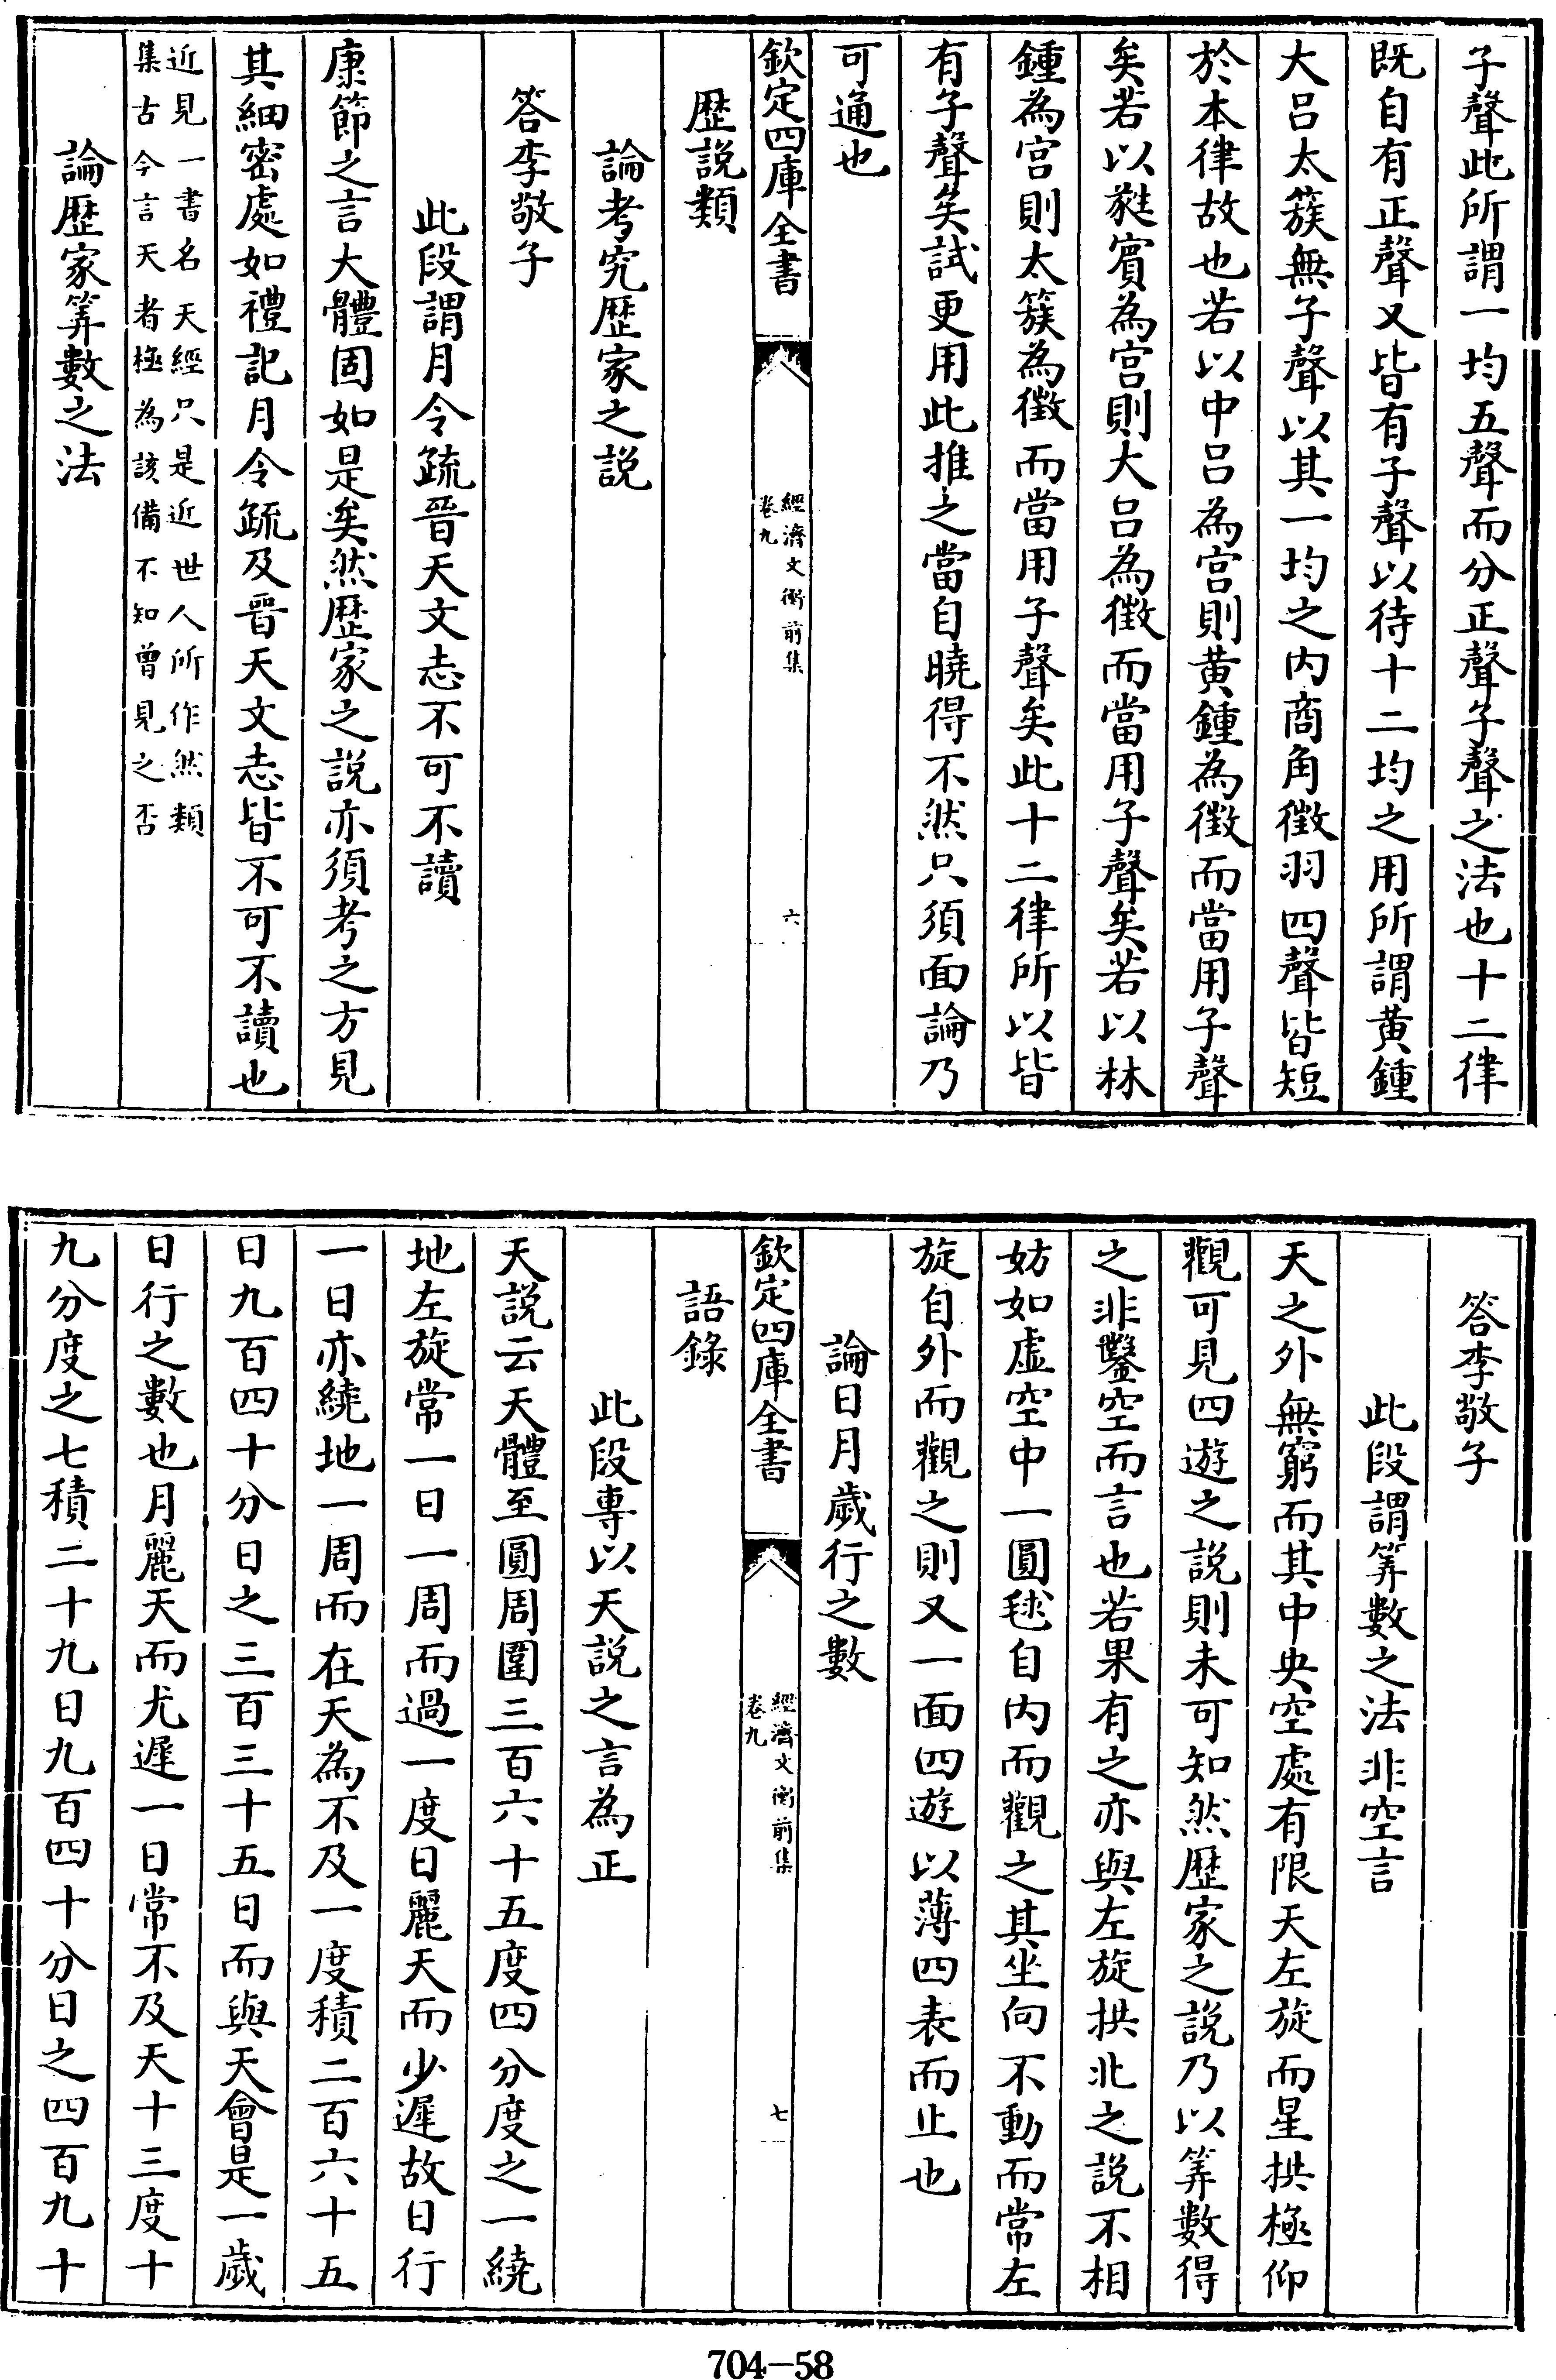 子聲此所謂一均五聲而分正聲子聲之法也十二律
既自有正聲又皆有子聲以待十二均之用所謂黄鍾
大呂太簇無子聲以其一均之内商角徵羽四聲皆短
於本律故也若以中呂為宫則黄鍾為徵而當用子聲
矣若以蕤賓為宫則大呂為徵而當用子聲矣若以林
鍾為宫則太簇為徵而當用子聲矣此十二律所以皆
有子聲矣試更用此推之當自曉得不然只須面論乃
可通也
欽定四庫全書
經濟文衡前集
卷九
六
歴說類
論考究歴家之說
答李敬子
此段謂月令疏晉天文志不可不讀
康節之言大體固如是矣然歴家之說亦須考之方見
其細密處如禮記月令疏及晉天文志皆不可不讀也
近見一書名天經只是近世人所作然類
集古今言天者極為該備不知曾見之否
論歴家筭數之法
答李敬子
此段謂筭數之法非空言
天之外無窮而其中央空處有限天左旋而星拱極仰
觀可見四遊之說則未可知然歴家之說乃以筭數得
之非鑿空而言也若果有之亦與左旋拱北之說不相
妨如虚空中一圓毬自内而觀之其坐向不動而常左
旋自外而觀之則又一面四遊以薄四表而止也
論日月歲行之數
欽定四庫全書
經濟文衡前集
卷九
七
語錄
此段專以天說之言為正
天說云天體至圓周圍三百六十五度四分度之一繞
地左旋常一日一周而過一度日麗天而少遲故日行
一日亦繞地一周而在天為不及一度積二百六十五
日九百四十分日之三百三十五日而與天會是一歲
日行之數也月麗天而尤遲一日常不及天十三度十
九分度之七積二十九日九百四十分日之四百九十
704-58